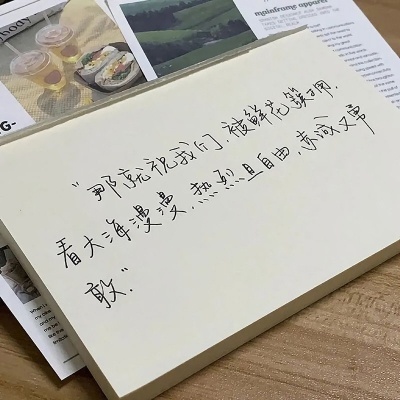 body
mainframe apparel
NG-
“那就祝我们,被鲜花簇拥,
看大海漫漫,热烈且自由,赤诚又勇
敢.”